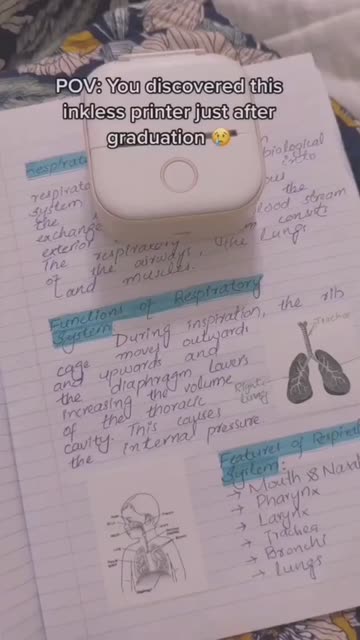 POV: You discovered this
inkless printer just after
graduation 😢
Respirato
biological
respirato
system
into
the
ous
the
exchang
blood stream
exterior
The respiratory
consists
of the airways, the lungs
and muscles.
Functions of Respiratory
System
During inspiration, the rib
cage moves outwards
and upwards and
the diaphragm lavers
increasing the volume
of the thoracic
cavity. This causes
the internal pressure
Trachea
Right
lung
Features of Respirat
System:
→ Mouth & Nasal
→ Pharynx
→ Larynx
→ Trachea
→ Bronchi
→ Lungs